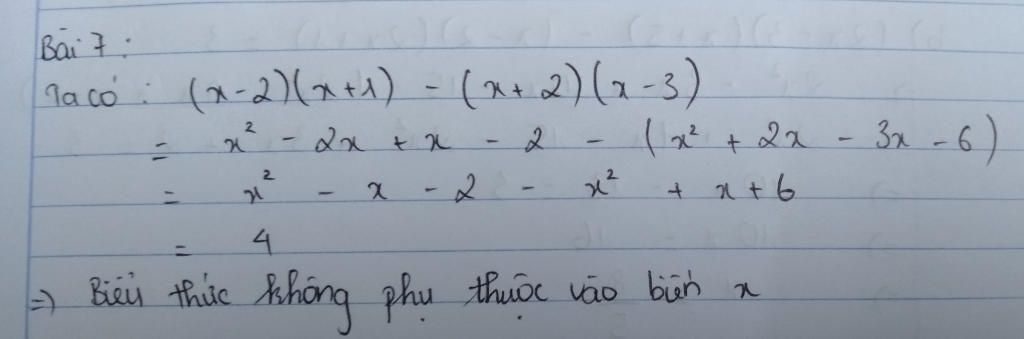 Bài 7 :
Ta có : (x-2)(x+1) - (x+2)(x-3)
= x² - 2x + x - 2 - (x² + 2x - 3x - 6)
= x² - x - 2 - x² + x + 6
= 4
=> Biểu thức không phụ thuộc vào biến x